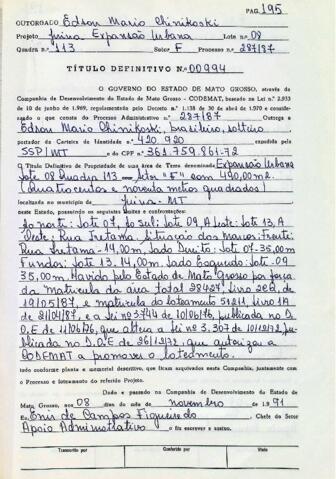 PAG. 195
OUTORGADO Edson Mario Chinikoski
Projeto Juina Expansão Urbana Lote n.º 08
Quadra n.º 113 Setor F Processo n.º 287/87
TÍTULO DEFINITIVO N.º 00994
O GOVERNO DO ESTADO DE MATO GROSSO, através da
Companhia de Desenvolvimento do Estado de Mato Grosso - CODEMAT, baseado na Lei n.º 2.933
de 10 de junho de 1969, regulamentado pelo Decreto n.º 1.138 de 30 de abril de 1970 e conside-
rando o que consta do Processo Administrativo n.º 287/87 Outorga a
Edson Mario Chinikoski, brasileiro, solteiro
portador da Carteira de Identidade n.º 420.920 expedida pelo
SSP/MT e do CPF n.º 361.759.861-72
O Título Definitivo de Propriedade de uma área de Terra denominada Expansão Urbana
Lote 08 Quadra 113 Setor "F" com 490,00m2.
(Quatrocentos e noventa metros quadrados)
localizada no município de Juina-MT
neste Estado, possuindo os seguintes limites e confrontações:
ao norte: Lote 07, ao Sul: Lote 09, A Leste: Lote 13, A
Oeste: Rua Ivitama. Situação dos Marcos: Frente:
Rua Ivitama - 14,00m, Lado Direito: Lote 07-35,00m
Fundos: Lote 13. 14,00m. Lado Esquerdo: Lote-09
35,00m. Havido pelo Estado de Mato Grosso por força
da matricula da área total 28427, livro 2ed, de
19/05/87, e matricula do loteamento 51211, livro 1A
de 21/04/87, e a lei nº 3744 de 10/06/76, publicada no D.
O.E de 11/06/76, que altera a lei nº 3.307 de 10/12/72, pu-
blicada no D.O.E de 26/12/72, que autoriza a
CODEMAT a promover o loteamento.
tudo conforme planta e memorial descritivo, que ficam arquivados nesta Companhia, juntamente com
o Processo e loteamento do referido Projeto.
Dado e passado na Companhia de Desenvolvimento do Estado de
Mato Grosso, aos 08 dias do mês de novembro de 1991
Eu Enir de Campos Figueiredo Chefe do Setor
Apoio Administrativo o fiz escrever e assino.
Transcrito por Conferido por Visto